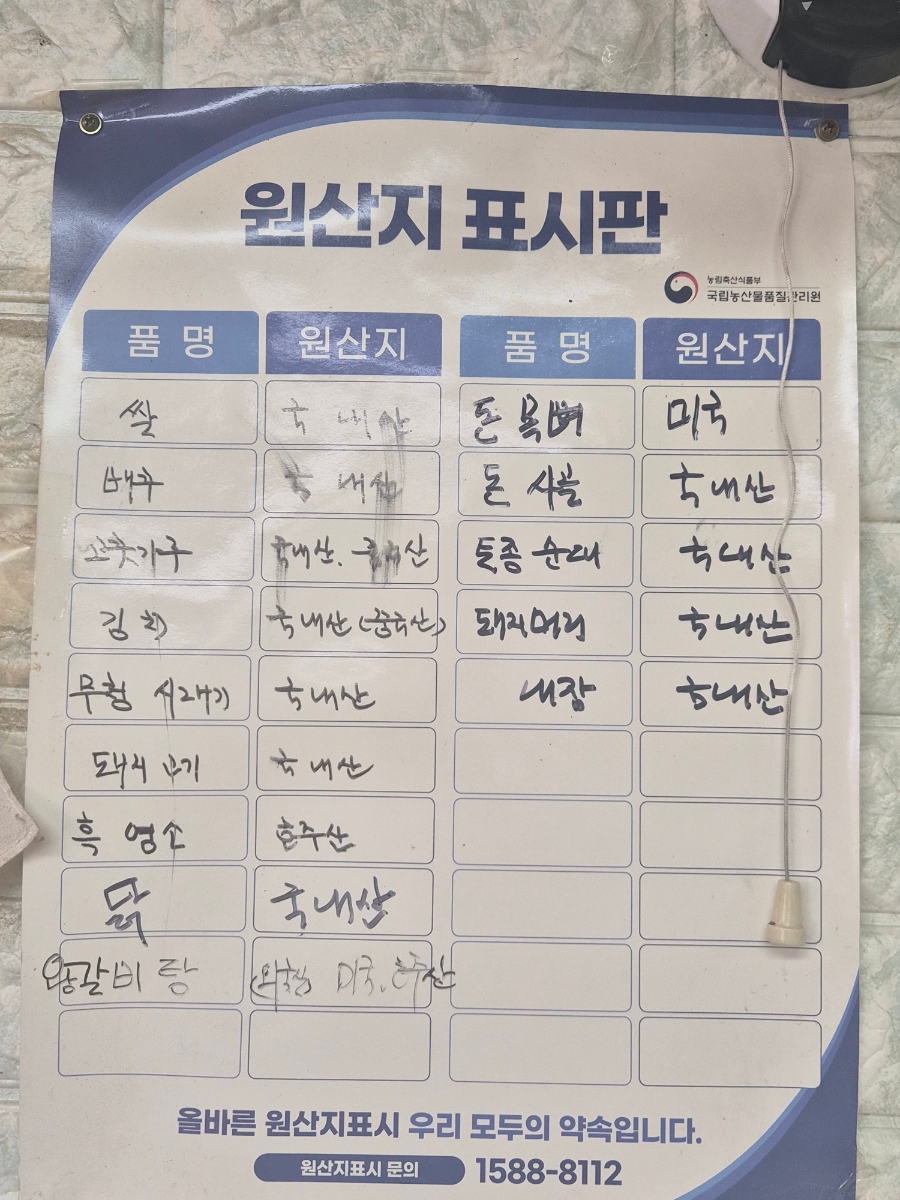 원산지 표시판
농림축산식품부
국립농산물품질관리원
품명 원산지 품명 원산지
쌀 국내산 돈 목뼈 미국
배추 국내산 돈 사골 국내산
국내산. 토종순대 국내산
김치 국내산 (중국산) 돼지머리 국내산
무청 시래기 국내산 내장 국내산
돼지고기 국내산
흑염소 호주산
닭 국내산
왕갈비탕 미국. 호주산
올바른 원산지표시 우리 모두의 약속입니다.
원산지표시 문의 1588-8112